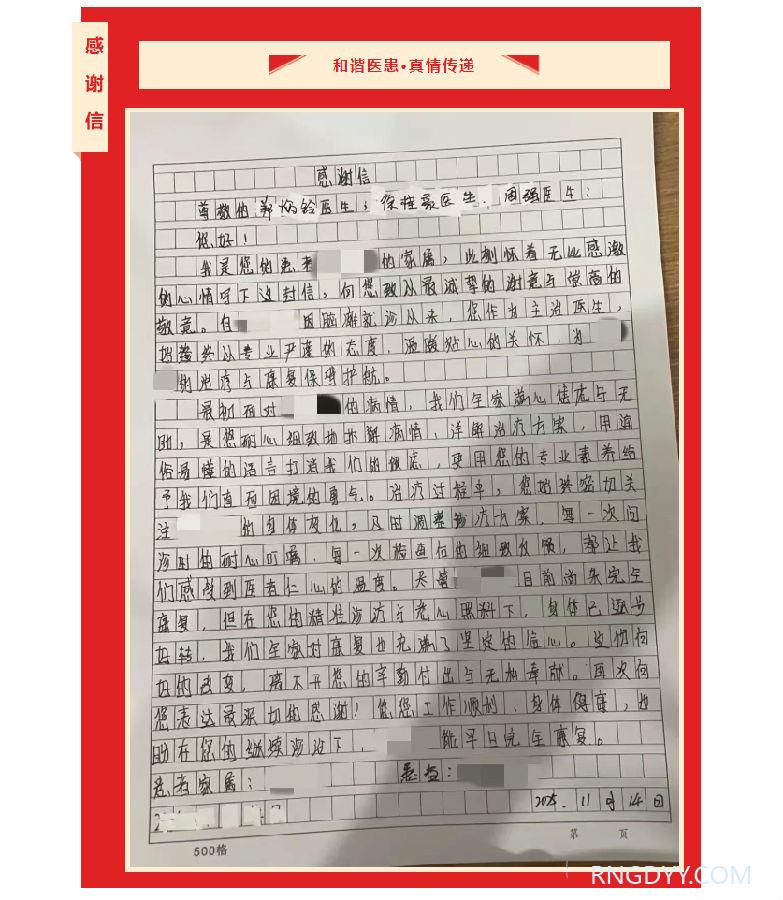 感谢信
和谐医患•真情传递
感谢信
尊敬的郑炳铨医生；徐桂豪医生；周强医生：
您好！
我是您的患者的家属，此刻怀着无比感激
的心情写下这封信，向您致以最诚挚的谢意与崇高的
敬意。自因脑瘫就诊以来，您作为主治医生，
始终以专业严谨的态度、温暖贴心的关怀，为
的治疗与康复保驾护航。
最初面对的病情，我们全家满心焦虑与无
助，是您耐心细致地拆解病情、详解治疗方案，用通
俗易懂的语言打消我们的顾虑，更用您的专业素养给
予我们直面困境的勇气。治疗过程中，您始终密切关
注的身体变化，及时调整诊疗方案，每一次问
诊时的耐心叮嘱、每一次检查后的细致反馈，都让我
们感受到医者仁心的温度。尽管目前尚未完全
康复，但在您的精准诊治与悉心照料下，身体已逐步
好转，我们全家对康复也充满了坚定的信心。这份向
好的改变，离不开您的辛勤付出与无私奉献。再次向
您表达最深切的感谢！愿您工作顺利、身体健康，也
盼在您的继续诊治下，能早日完全康复。
患者家属： 患者：
2025.11月14日
第 页
500格
RNGDYY.COM